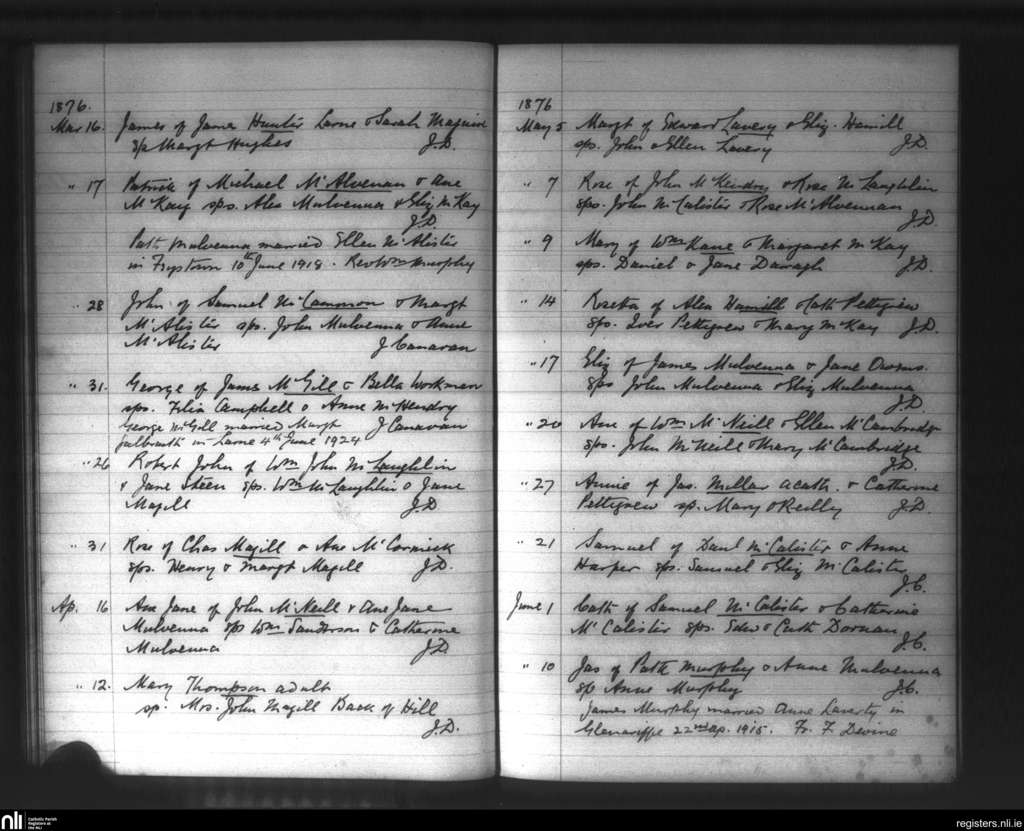 1876.
Mar 16. James of James Hunter Larne & Sarah Maguire
sp Margt Hughes J.D.
" 17 Patrick of Michael McAlvenan & Ane
McKay sps. Alex Mulvenna & Eliz McKay
J.D.
Patk Mulvenna married Ellen McAlister
in 10th June 1918. Rev Wm Murphy
" 28 John of Samuel McCammon & Margt
McAlister sps. John Mulvenna & Anne
McAlister J Canavan
" 31. George of James McGill & Bella Workman
sps. Felix Campbell & Anne McHendry
George McGill married Margt J Canavan
Galbraith in Larne 4th June 1924
" 26 Robert John of Wm John McLaughlin
& Jane Steen sps. Wm McLaughlin & Jane
Magill J.D
" 31 Rose of Chas Magill & Ane McCormick
sps. Henry & Margt Magill J.D.
Ap. 16 Ann Jane of John McNeill & Ane Jane
Mulvenna sps Wm Sanderson & Catherine
Mulvenna J.D
" 12. Mary Thompson adult
sp. Mrs. John Magill Back of Hill
J.D.
1876
May 5 Margt of Edward Lavery & Eliz. Hamill
sps. John & Ellen Lavery J.D.
" 7 Rose of John McKendry & Rose McLaughlin
sps. John McCalister & Rose McAlvennan
J.D.
" 9 Mary of Wm Kane & Margaret McKay
sps. Daniel & Jane Darragh J.D.
" 14 Rosetta of Alex Hamill & Cath Pettigrew
sps. Iver Pettigrew & Mary McKay J.D.
" 17 Eliz of James Mulvenna & Jane Owens.
sps John Mulvenna & Eliz Mulvenna
J.D.
" 20 Ane of Wm McNeill & Ellen McCambridge
sps. John McNeill & Mary McCambridge
J.D.
" 27 Annie of Jas. Millar acath. & Catherine
Pettigrew sp. Mary O'Reilly J.D.
" 21 Samuel of Danl McCalister & Anne
Harper sps. Samuel & Eliz McCalister
J.C.
June 1 Cath of Samuel McCalister & Catherine
McCalister sps. Edw & Cath Dornan
J.C.
" 10 Jas of Patk Murphy & Anne Mulvenna
sp Anne Murphy J.C.
James Murphy married Anne Laverty in
Glenariffe 22nd Ap. 1915. Fr. F. Devine
nli
Catholic Parish
Registers at
the NLI
registers.nli.ie